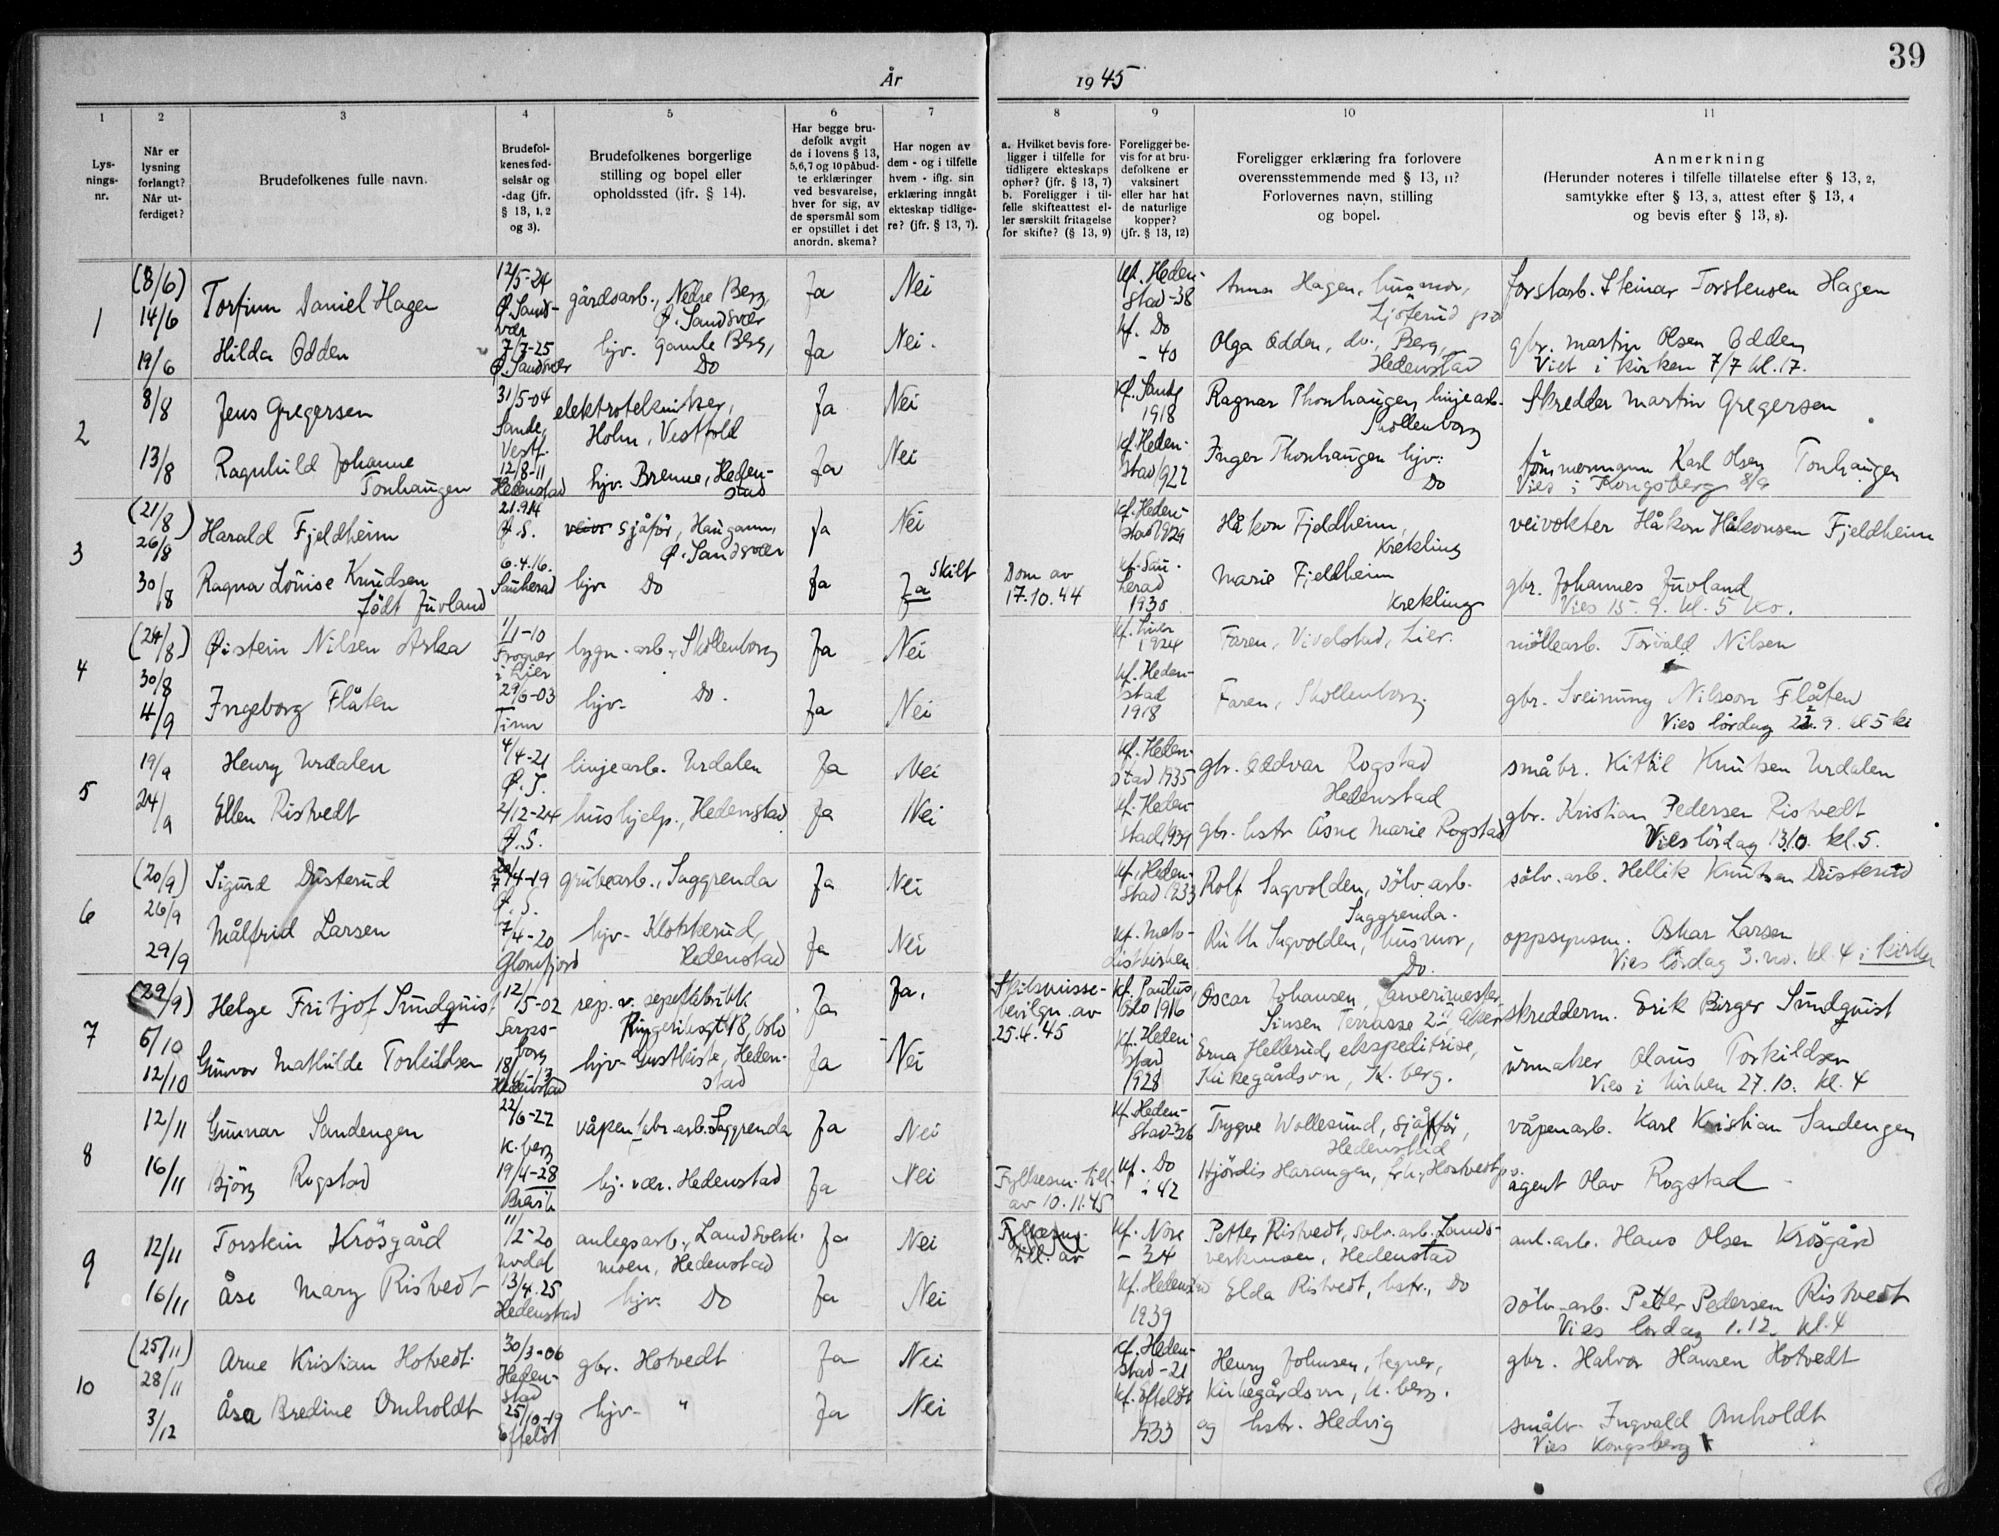 39
År 1945
1 2 3 4 5 6 7 8 9 10 11
Lys-
nings-
nr.
Når er
lysning
forlangt?
Når ut-
ferdiget?
Brudefolkenes fulle navn.
Brudefol-
kenes fød-
selsår og
-dag (jfr.
§ 13, 1, 2
og 3).
Brudefolkenes borgerlige
stilling og bopel eller
opholdssted (ifr. § 14).
Har begge bru-
defolk avgit
de i lovens § 13,
5,6,7 og 10 påbud-
te erklæringer
ved besvarelse,
hver for sig, av
de spørsmål som
er opstillet i det
anordn. skema?
Har nogen av
dem - og i tilfelle
hvem - iflg. sin
erklæring inngått
ekteskap tidlige-
re? (jfr. § 13, 7).
a. Hvilket bevis fore-
ligger i tilfelle for
tidligere ekteskaps
ophør? (jfr. § 13, 7)
b. Foreligger i til-
felle skifteattest el-
ler særskilt fritagelse
for skifte? (§ 13, 9)
Foreligger be-
vis for at bru-
defolkene er
vaksinert
eller har hat
de naturlige
kopper?
(jfr. § 13, 12)
Foreligger erklæring fra forlovere
overensstemmende med § 13, 11?
Forlovernes navn, stilling
og bopel.
Anmerkning
(Herunder noteres i tilfelle tillatelse efter § 13, 2,
samtykke efter § 13, 3, attest efter § 13, 4
og bevis efter § 13, 8).
1
(8/6)
14/6
19/6
Torfinn Daniel Hagen
12/5-24
Ø. Sands-
vær
gårdsarb., Nedre Berg,
Ø. Sandsvær
Ja
Nei
kf. Heden-
stad-38
Anna Hagen, husmor,
forstarb. Steinar Torstensen Hagen
Hilda Odden
7/7-25
Ø. Sandsvær
hjv. gamle Berg,
Do
Ja
Nei.
kf. Do
- 40
Olga Odden, do., Berg,
Hedenstad
gbr. Martin Olsen Odden
Viet i kirken 7/7 kl. 17.
2
8/8
13/8
Jens Gregersen
31/5-04
Sande,
Vestf.
elektrotekniker,
Holm, Vestfold
Ja
Nei
kf. Sande
1918
Ragnar Thonhaugen, linjearb.
Skollenborg
Skredder Martin Gregersen
Ragnhild Johanne
Tonhaugen
12/8-11
Hedenstad
hjv. Brenne, Heden-
stad
Ja
Nei
kf. Heden-
stad 1922
Inger Thonhaugen hjv.
Do
tömmermann Karl Olsen Tonhaugen
Vies i Kongsberg 8/9
3
(21/8)
26/8
30/8
Harald Fjeldheim
21.9.14
Ø.S.
sjåför, Haugann,
Ø. Sandsvær
Ja
Nei
kf. Heden-
stad 1929
Håkon Fjeldheim,
Krekling
veivokter Håkon Håkonsen Fjeldheim
Ragna Louise Knudsen
født Juvland
6.4.16.
Sauherad
hjv. Do
Ja
Ja skilt
Dom av
17.10.44
kf. Sau-
herad
1930
Marie Fjeldheim
Krekling
gbr. Johannes Juvland
Vies 15-9. kl. 5 Ko.
4
(24/8)
30/8
4/9
Øistein Nilsen Aska
1/1-10
Frogner
i Lier
bygn.-arb., Skollenborg
Ja
Nei
kf. Lier
1924
Faren, Vivelstad, Lier.
møllearb. Torvald Nilsen
Ingeborg Flåten
29/6-03
Tinn
hjv. Do.
Ja
Nei
kf. Heden-
stad
1918
Faren, Skollenborg.
gbr. Sveinung Nilsson Flåten
Vies lördag 22.9. kl 5 ki
5
19/9
24/9
Henry Urdalen
4/4-21
Ø.S.
linjearb. Urdalen
Ja
Nei
kf. Heden-
stad 1935
gbr. Oddvar Rogstad
Hedenstad
småbr. Kittil Knutsen Urdalen
Ellen Ristvedt
2/12-24
Ø.S.
hushjelp., Hedenstad
Ja
Nei
kf. Heden-
stad 1939
gbr. hstr Åsne Marie Rogstad
gbr. Kristian Pedersen Ristvedt
Vies lördag 13.10. kl. 5.
6
(20/9)
26/9
29/9
Sigurd Dusterud
4-19
Ø.S.
grubearb., Saggrenda
Ja
Nei
kf. Heden-
stad 1933
Rolf Sagvolden, sölv.arb.
Saggrenda.
sölv.arb. Hellik Knutsen Dusterud
Målfrid Larsen
7/4-20
Glomfjord
hjv. Klokkerud,
Hedenstad
Ja
Nei
kf. Meto-
distkirken
Ruth Sagvolden, husmor,
Do.
oppsynsm. Oskar Larsen
Vies lördag 3. nov. kl. 4 i kirken
7
(29/9)
6/10
12/10
Helge Fritjof Sundquist
12/5-02
Sarps-
borg
rep. v. sepefabrikk
Ringeriksgt 18, Oslo
Ja
Ja.
Skilsmisse-
bevilgn. av
25.4.45
kf. Paulus,
Oslo 1916
Oscar Johansen, farverimester
Sinsen Terrasse 2 Aker
skredderm. Erik Birger Sundquist
Gunvor Mathilde Torkildsen
18/11-13
Hedenstad
hjv. Gustkiste, Heden-
stad
Ja
Nei
kf. Heden
stad
1928
Erna Hellerud, ekspeditrise,
Kirkegårdsvn, K.berg.
urmaker Olaus Torkildsen
Vies i kirken 27.10. kl. 4
8
12/11
16/11
Gunnar Sandengen
22/6-22
K.berg
våpenfabr.arb. Saggrenda
Ja
Nei
kf. Heden-
stad-36
Trygve Wollesund, sjåför,
Hedenstad
våpenarb. Karl Kristian Sandengen
Björg Rogstad
19/4-28
hj. vær. Hedenstad
Ja
Nei
Fylkesm. till.
av 10.11.45
kf. Do
i 42
Hjördis Harangen, frk., Hostvedt
agent Olav Rogstad
9
12/11
16/11
Torstein Krösgård
11/2-20
Uvdal
anlegsarb., Landsverk-
moen, Hedenstad
Ja
Nei
Fylkesm.
till. av
kf. Nore
- 34
Petter Ristvedt, sölv.arb. Lands-
verkmoen, Hedenstad
anl.arb. Hans Olsen Krösgård
Åse Mary Ristvedt
13/4.25
Hedenstad
hjv. Do
Ja
Nei
kf. Hedenstad
1939
Elda Ristvedt, hstr., Do
sölv-arb. Petter Pedersen Ristvedt
Vies lördag 1.12. kl. 4
10
(25/11)
28/11
3/12
Arne Kristian Hotvedt
30/3-06
Heden-
stad
gbr. Hotvedt
Ja
Nei
kf. Heden-
stad-21
Henry Johnsen, tegner,
Kirkegårdsvn, K.berg.
gbr. Halvor Hansen Hotvedt
Åsa Bredine Omholdt
25/10-19
Efteløt
hjv. "
Ja
Nei
kf. Efteløt
1933
og hstr. Hedvig
småbr. Ingvald Omholdt
Vies Kongsberg